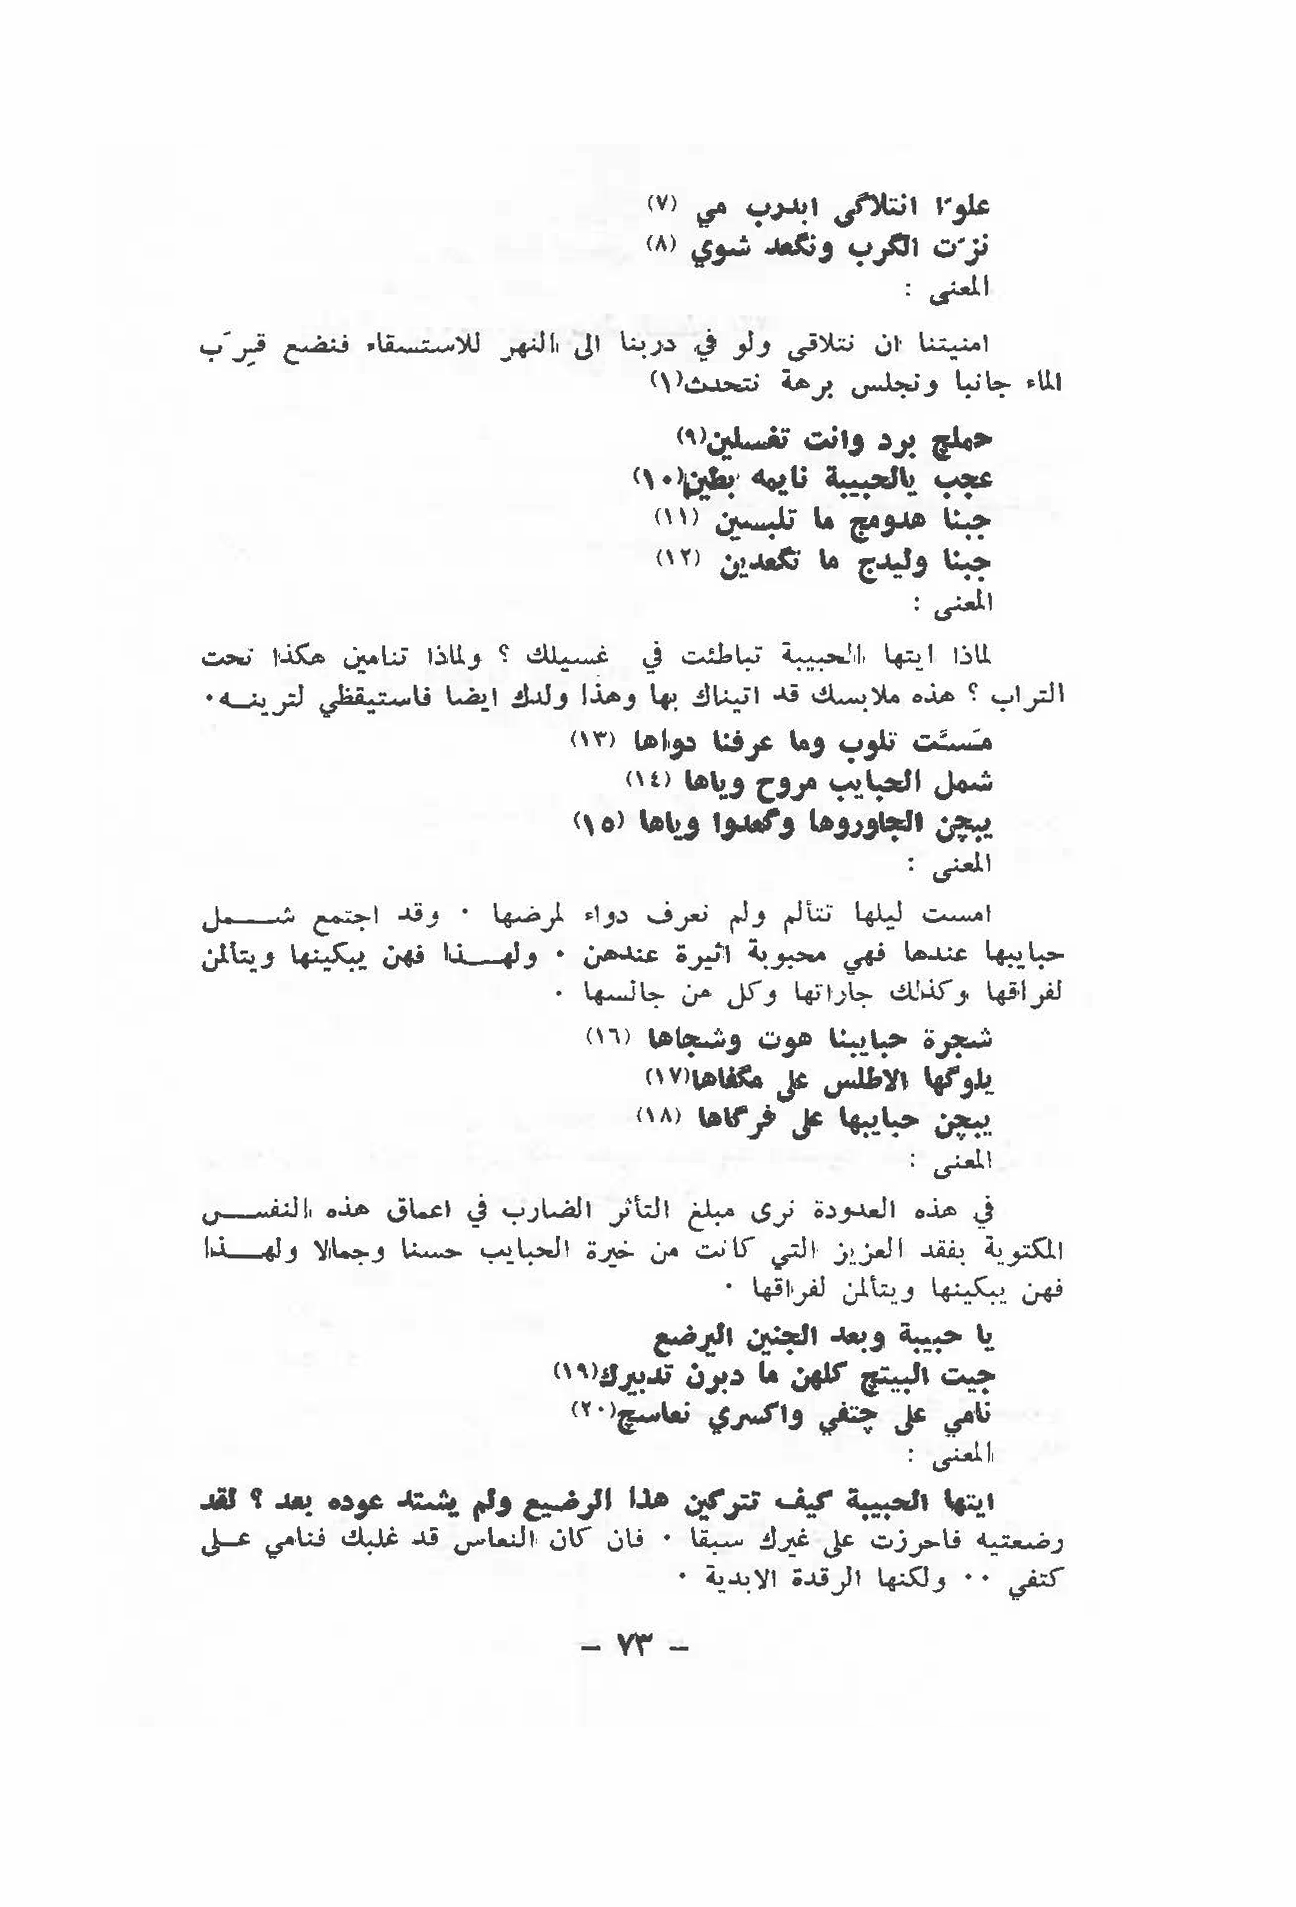 علوّا انتلاگى ابدرب مي (٧)
نزّت الگرب ونگعد شوي (٨)
المعنى :
امنيتنا ان نتلاقى ولو في دربنا الى النهر للاستسقاء فنضع قِرَب
الماء جانبا ونجلس برهة نتحدث(١)
حملچ برد وانت تغسلين(٩)
عجب يالحبيبة نايمه بطين(١٠)
جبنا هدومج ما تلبسين (١١)
جبنا وليدج ما تگعدين (١٢)
المعنى :
لماذا ايتها الحبيبة تباطئت في غسيلك ؟ ولماذا تنامين هكذا تحت
التراب ؟ هذه ملابسك قد اتيناك بها وهذا ولدك ايضا فاستيقظي لترينه٠
مَسَّت تلوب وما عرفنا دواها (١٣)
شمل الحبايب مروح وياها (١٤)
يبچن الجاوروها وگعدوا وياها (١٥)
المعنى :
امست ليلها تتألم ولم نعرف دواء لمرضها ٠ وقد اجتمع شمل
حبايبها عندها فهي محبوبة اثيرة عندهن ٠ ولهذا فهن يبكينها ويتألمن
لفراقها وكذلك جاراتها وكل من جالسها ٠
شجرة حبايبنا هوت وشجاها (١٦)
يلوگها الاطلس على مگفاها(١٧)
يبچن حبايبها على فرگاها (١٨)
المعنى :
في هذه العدودة نرى مبلغ التأثر الضارب في اعماق هذه النفس
المكتوية بفقد العزيز التي كانت من خيرة الحبايب حسنا وجمالا ولهذا
فهن يبكينها ويتألمن لفراقها ٠
يا حبيبة وبعد الجنين اليرضع
جيت البيتچ كلهن ما دبرن تدبيرك(١٩)
نامي على چتفي واكسري نعاسچ(٢٠)
المعنى :
ايتها الحبيبة كيف تتركين هذا الرضيع ولم يشتد عوده بعد ؟ لقد
رضعتيه فاحرزت على غيرك سبقا ٠ فان كان النعاس قد غلبك فنامي على
كتفي ٠٠ ولكنها الرقدة الابدية ٠
– ٧٣ –